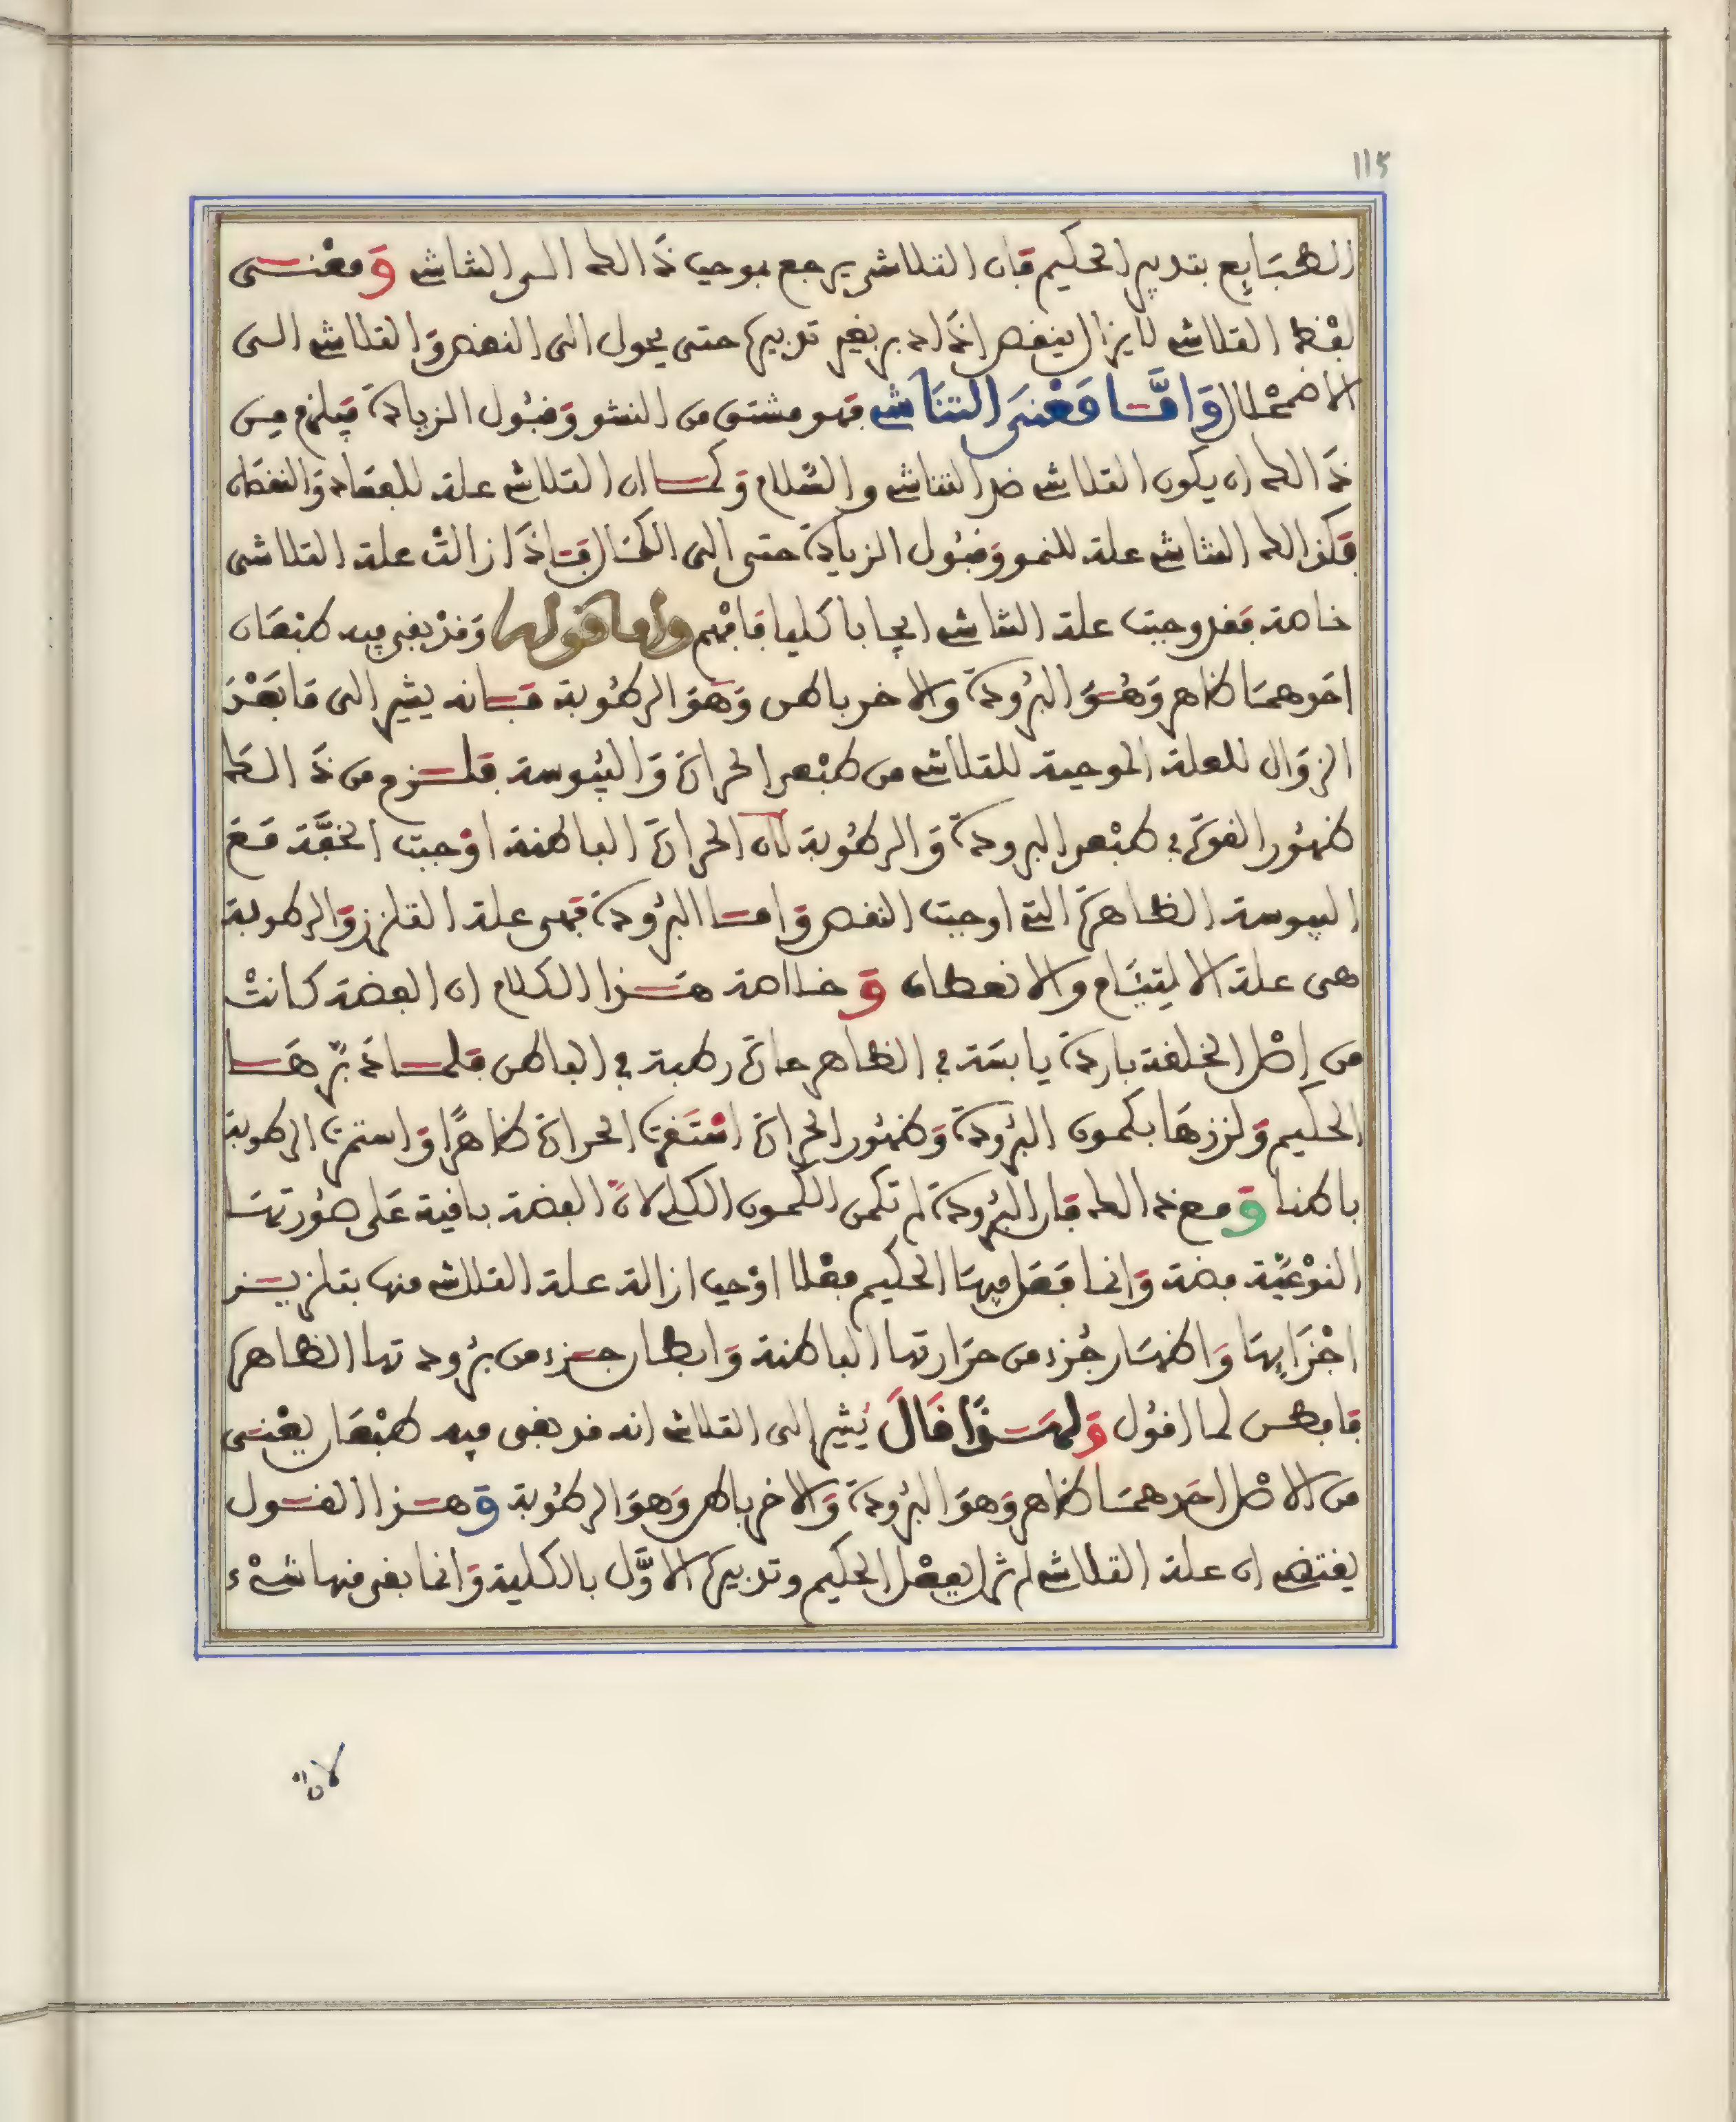 115
الطبَايِع بتدبير الحكيم فإن التلاشي يرجع بموجب ذَالك الى التناشي وَمعْنى
لفْظ التلاشي لا يزال ينقص إذَا دبر بغير تدبيره حتى يحول الى النقص وَالتلاشي الى
الاضمحْلال وَامَّا مَعْنَى التنَاشي فهو مشتق من النشو وَقبُول الزيادة فيلزم من
ذَالك ان يكون التلاشي ضد التناشي والسَّلام وَكما ان التلاشي علة للفسَاد وَالنقصَان
فكذَالك التناشي علة للنمو وَقبُول الزيادة حتى الى الكمَال فإذَا زالتْ علة التلاشي
خاصة فقد وجبت علة التناشي ايجابا كليا فَافْهم واما قوله وَقدْ بقي فيه طبْعَان
احَدهمَا ظاهر وَهُوَ البرُودة والاخر باطن وَهوَ الرطُوبة فإنه يشير الى مَا بَعْدَ
الزوَال للعلة الموجبة للتلاشي من طبْعي الحرارة وَاليبُوسة فلزم من ذَالك
ظهُور القوة في طبْعي البرودة وَالرطُوبة لان الحرارة الباطنة اوْجبت الخفَّة مَعَ
اليبوسة الظاهرة التي اوجبت النقص وَاما البرُودة فهي علة التلزز وَالرطوبة
هي علة الالتيَام والانعطاف وَخلاصة هَذا الكلام ان الفضة كانتْ
من اصْل الخلقة باردة يابسَة في الظاهر حارة رطبة في الباطن فلما دَبّرهَا
الحكيم وَلززهَا بكمون البرُودة وَظهُور الحرارة اسْتَقرت الحرارة ظاهرًا وَاستمرت الرطوبة
باطنا وَمع ذالك فإن البرُودة لم تكمن الكمون الكلي لانّ الفضة باقية عَلى صُورتهَا
النوْعيَّة فضة وَانما فَعَل فيهَا الحكيم فعْلا اوْجب ازالة علة التلاشي منها بتلزيز
اجْزَايهَا وَاظهَار جُزء من حرَارتها الباطنة وَابطان جزء من برُودتها الظاهرة
فافطن لما اقول وَلهَذَا قَالَ يُشير الى التلاشي انه قد بقي فيه طبْعَان يعْني
من الاصْل احَدهمَا ظاهر وَهوَ البرُودة وَالاخر باطن وَهوَ الرطُوبة وَهذا القول
يقتضي ان علة التلاشي لم تزل بفعْل الحكيم وتدبيره الاوَّل بالكلية وَانما بقي منها شيْء
لانه